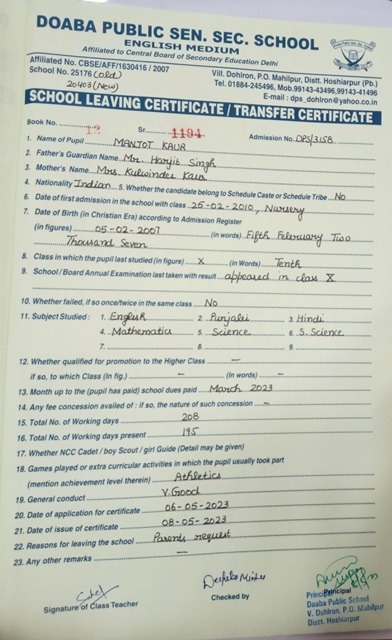 DOABA PUBLIC SEN. SEC. SCHOOL
ENGLISH MEDIUM
Affiliated to Central Board of Secondary Education Delhi
Affiliated No. CBSE/AFF/1630416 / 2007
School No. 25176 (old)
20403 (New)
Vill. Dohlron, P.O. Mahilpur, Distt. Hoshiarpur (Pb.)
Tel. 01884-245496, Mob.99143-43496,99143-41496
E-mail : dps_dohlron@yahoo.co.in
SCHOOL LEAVING CERTIFICATE / TRANSFER CERTIFICATE
Book No. 12 Sr. 1194 Admission No. DPS/3158
1. Name of Pupil MANJOT KAUR
2. Father's Guardian Name Mr. Harjit Singh
3. Mother's Name Mrs. Kulwinder Kaur
4. Nationality Indian 5. Whether the candidate belong to Schedule Caste or Schedule Tribe No
6. Date of first admission in the school with class 25-02-2010, Nursery
7. Date of Birth (in Christian Era) according to Admission Register
(in figures) 05-02-2007 (in words) Fifth February Two
Thousand Seven
8. Class in which the pupil last studied (in figure) X (in Words) Tenth
9. School / Board Annual Examination last taken with result appeared in class X
10. Whether failed, if so once/twice in the same class No
11. Subject Studied : 1. English 2. Punjabi 3. Hindi
4. Mathematics 5. Science 6. S. Science
7. 8. 9.
12. Whether qualified for promotion to the Higher Class —
if so, to which Class (In fig.) — (In words) —
13. Month up to the (pupil has paid) school dues paid March 2023
14. Any fee concession availed of : if so, the nature of such concession —
15. Total No. of Working days 208
16. Total No. of Working days present 195
17. Whether NCC Cadet / boy Scout / girl Guide (Detail may be given)
18. Games played or extra curricular activities in which the pupil usually took part
(mention achievement level therein) Athletics
19. General conduct V. Good
20. Date of application for certificate 06-05-2023
21. Date of issue of certificate 08-05-2023
22. Reasons for leaving the school Parents request
23. Any other remarks —
Signature of Class Teacher
Checked by
Principal
Principal
Doaba Public School
V. Dohlron, P.O. Mahilpur
Distt. Hoshiarpur